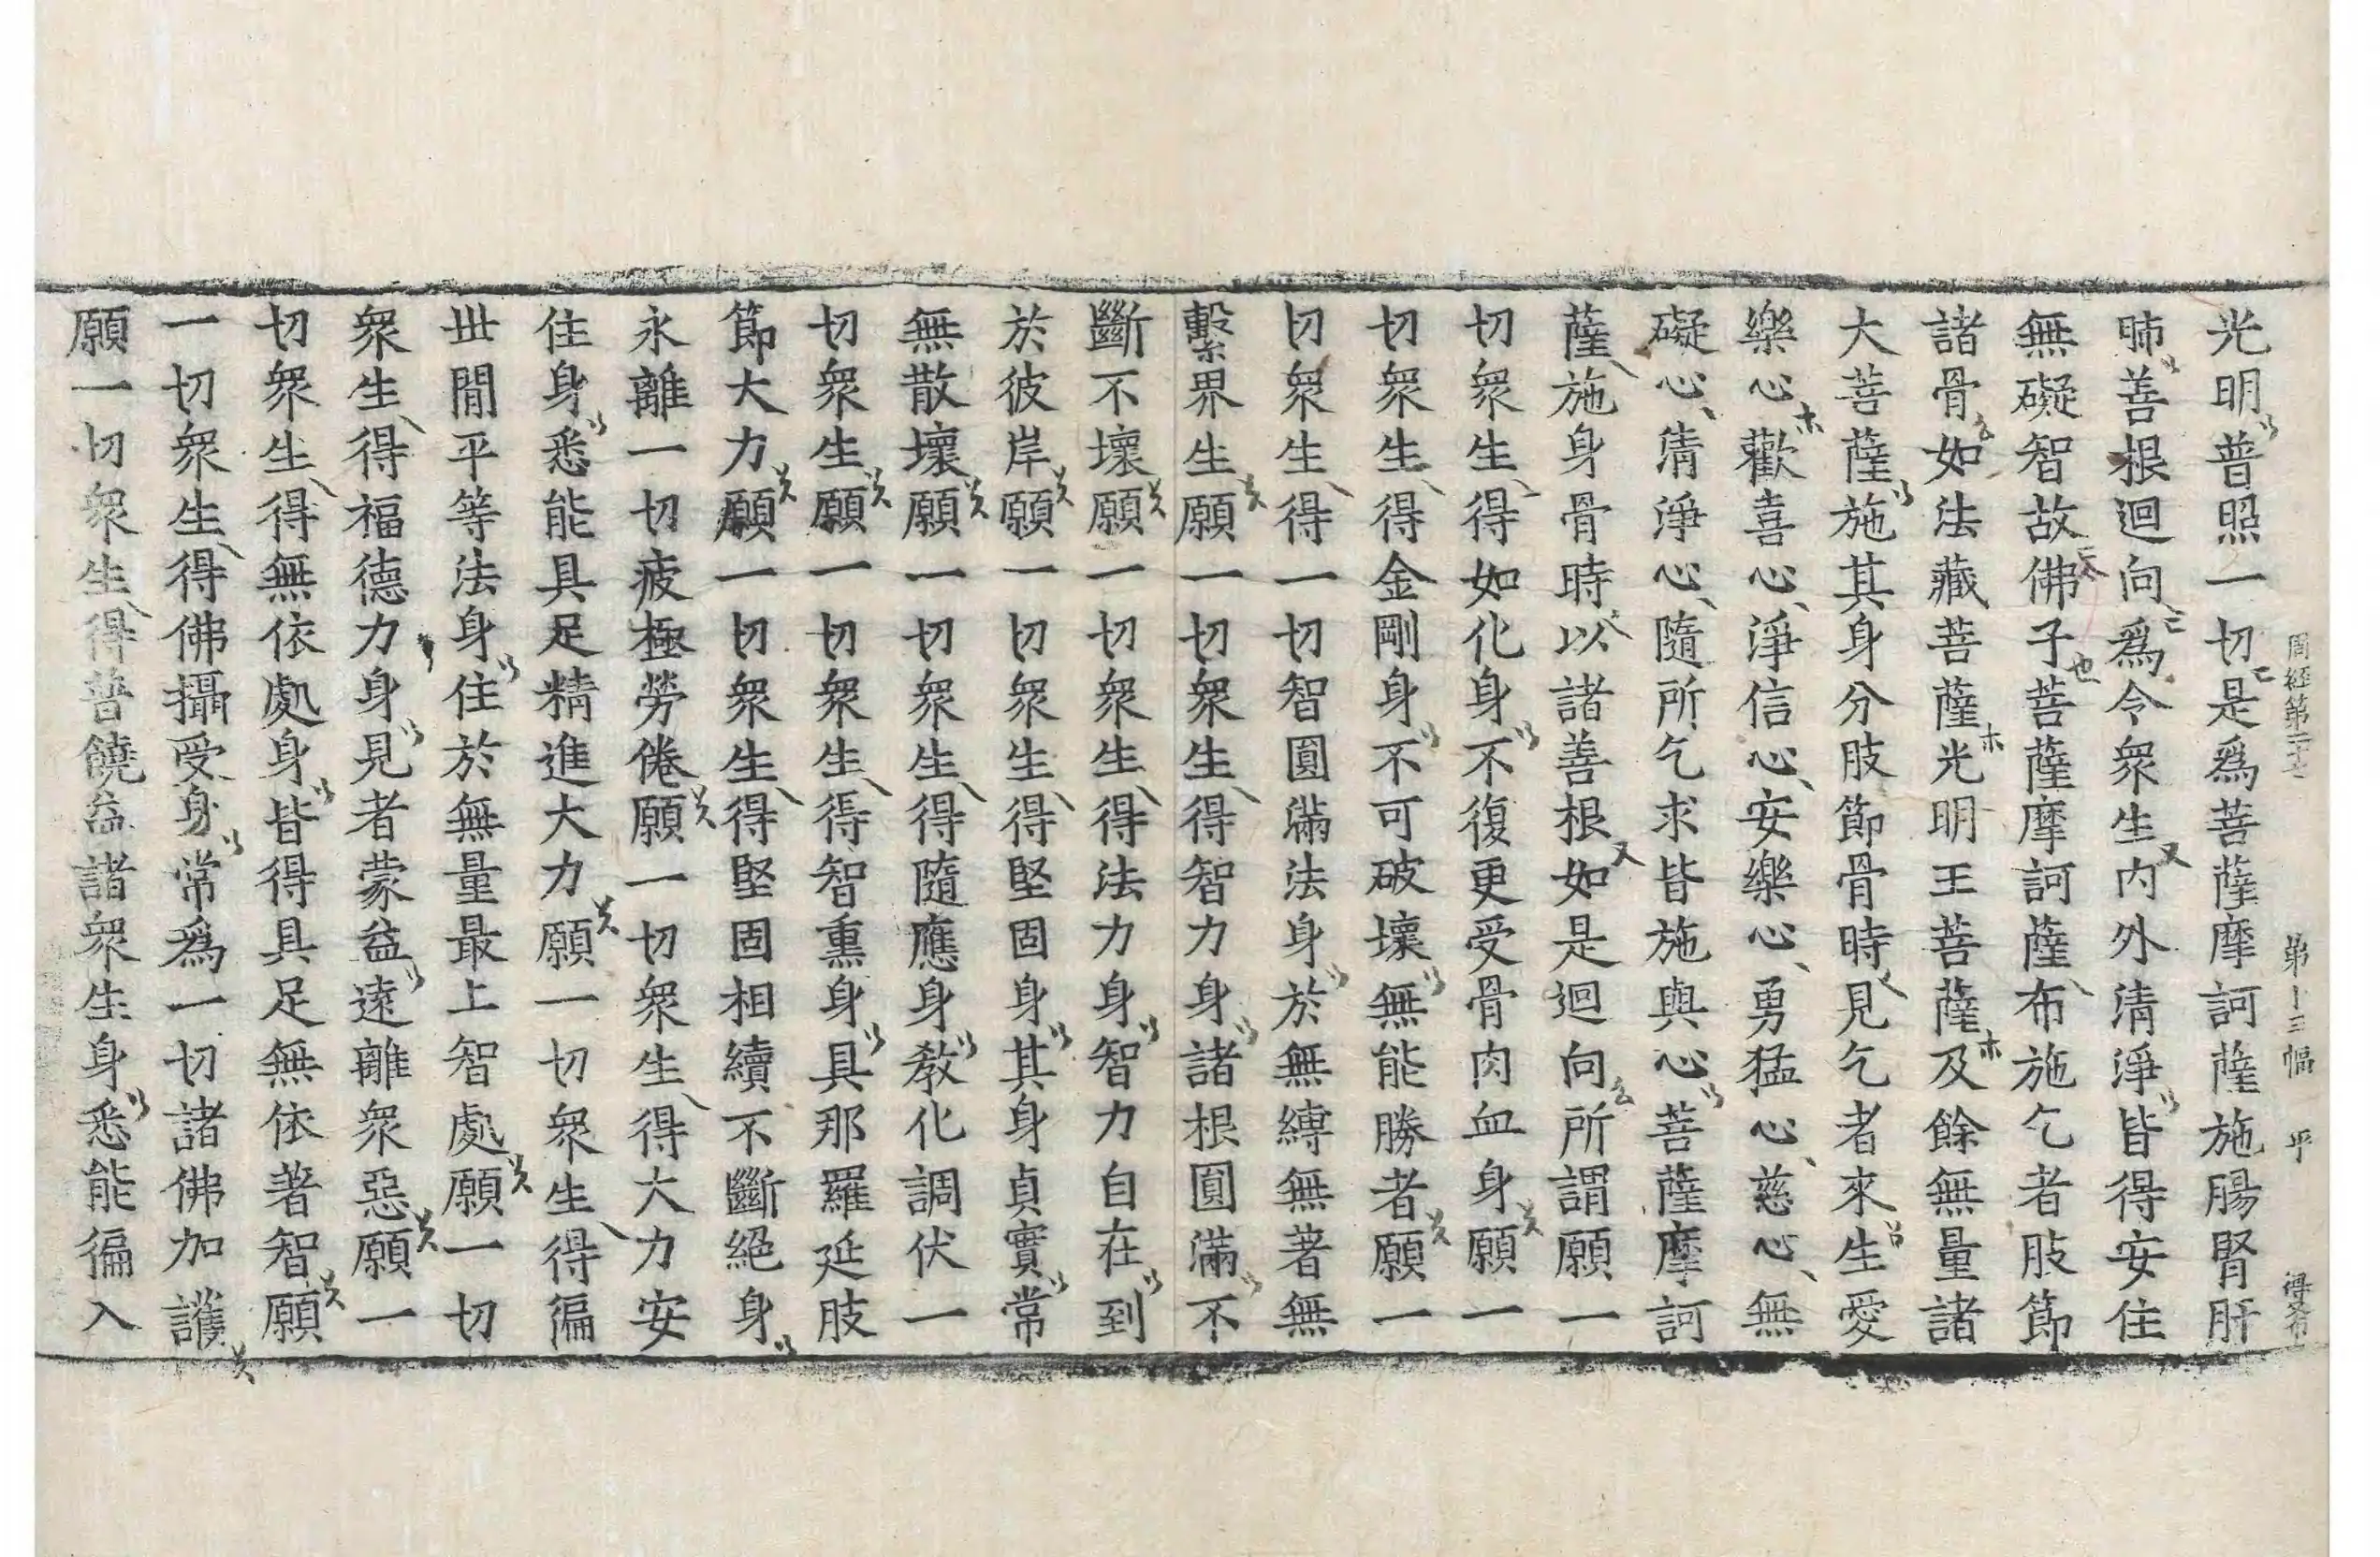 周經第二十七 第十三幅 平 得冬布
光明普照一切是爲菩薩摩訶薩施腸腎肝
肺善根迴向爲令衆生內外清淨皆得安住
無礙智故佛子菩薩摩訶薩布施乞者肢節
諸骨如法藏菩薩光明王菩薩及餘無量諸
大菩薩施其身分肢節骨時見乞者來生愛
樂心歡喜心淨信心安樂心勇猛心慈心無
礙心淸淨心隨所乞求皆施與心菩薩摩訶
薩施身骨時以諸善根如是迴向所謂願一
切衆生得如化身不復更受骨肉血身願一
切衆生得金剛身不可破壞無能勝者願一
切衆生得一切智圓滿法身於無縛無著無
繫界生願一切衆生得智力身諸根圓滿不
斷不壞願一切衆生得法力身智力自在到
於彼岸願一切衆生得堅固身其身貞實常
無散壞願一切衆生得隨應身敎化調伏一
切衆生願一切衆生得智熏身具那羅延肢
節大力願一切衆生得堅固相續不斷絕身
永離一切疲極勞倦願一切衆生得大力安
住身悉能具足精進大力願一切衆生得徧
世閒平等法身住於無量最上智處願一切
衆生得福德力身見者蒙益遠離衆惡願一
切衆生得無依處身皆得具足無依著智願
一切衆生得佛攝受身常爲一切諸佛加護
願一切衆生得普饒益諸衆生身悉能徧入